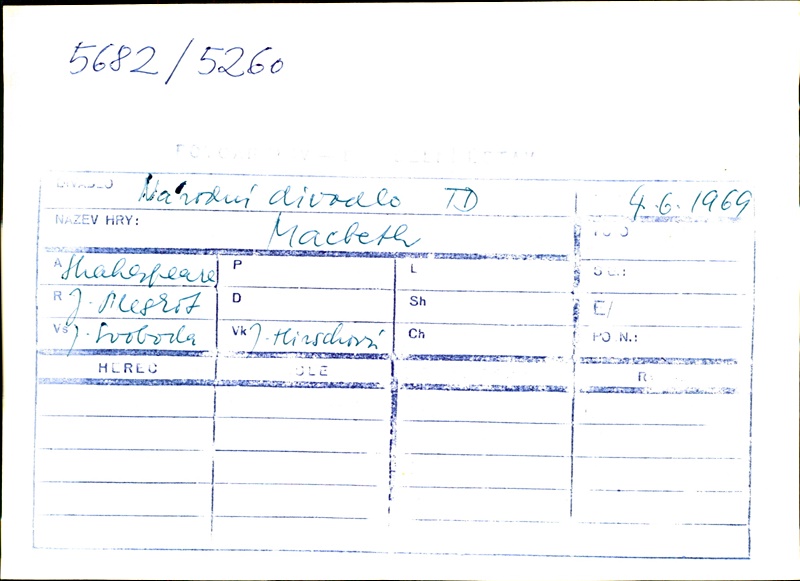 5682/5260
DIVADLO Národní divadlo TD 4.6.1969
NÁZEV HRY: Macbeth
A Shakespeare P L
R J. D Sh E/
Vs J. Svoboda Vk J. Hirschová Ch PO.N.:
HEREC